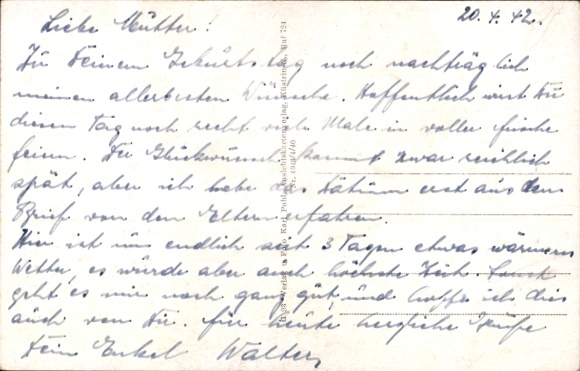 20.4.42.
Liebe Mutter!
Zu Deinem Geburtstag noch nachträglich
meinen allerbesten Wünsche. Hoffentlich wirst Du
diesen Tag noch recht viele Male in voller frische
feiern. Der Glückwunsch kommt zwar reichlich
spät, aber ich habe das Datum erst aus dem
Brief von den Eltern erfahren.
Hier ist nun endlich seit 3 Tagen etwas wärmeres
Wetter, es wurde aber auch höchste Zeit. Sonst
geht es mir noch ganz gut, und hoffe ich dies
auch von Dir. Für heute herzliche Grüße
Dein Enkel Walter,
Verlag Karl Pohl, Ansichtskartenverlag, Küstrin, Ruf 724